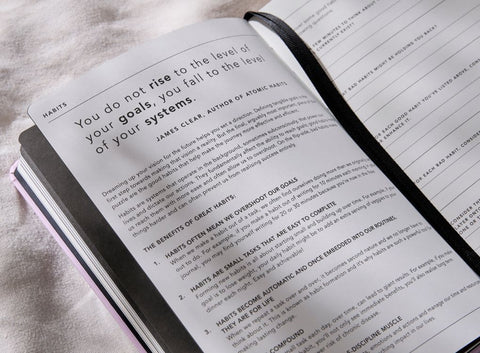 HABITS
You do not rise to the level of
your goals, you fall to the level
of your systems.
JAMES CLEAR, AUTHOR OF ATOMIC HABITS
Dreaming up your vision for the future helps you set a direction. Defining tangible goals
first step towards making that vision a reality. But the final, arguably most important, piece
puzzle are the good habits that help make the journey more effective and efficient.
Habits are systems that operate in the background, sometimes subconsciously, that
lives and dictate our actions. They fundamentally affect the ability to reach goals; good
us reach them with more ease and often allow us to overshoot. On the flip side, bad habits make
things harder and can often prevent us from realising success entirely.
THE BENEFITS OF GREAT HABITS:
1. HABITS OFTEN MEAN WE OVERSHOOT OUR GOALS
When we make a habit out of a task, we often find ourselves doing more than we originally
out to do. For example, if you make a habit out of writing for 10 minutes each
journal, you may find yourself writing for 20 or 30 minutes because you're now in the
2. HABITS ARE SMALL TASKS THAT ARE EASY TO COMPLETE
Forming new habits is all about starting small and building up over time. For example, if your
goal is to lose weight, your daily habit might be to add an extra serving of veggies to your
dinner each night. Easy and achievable!
3. HABITS BECOME AUTOMATIC AND ONCE EMBEDDED INTO OUR ROUTINES,
THEY ARE FOR LIFE
When we repeat a task over and over, it becomes second nature and we no longer have to
think about it. This is known as habit formation and it's why habits are such a powerful
the risk of chronic disease.
COMPOUND
small task each day, over time, can lead to giant results. For example, if you
habit, you'll not only see immediate benefits, you'll also
-DISCIPLINE MUSCLE
emotions and actions and manage our time and
ching impact in our lives.
FEW MINUTES TO THINK ABOUT
CURRENTLY EXIST?
BAD HABITS MIGHT BE HOLDING YOU BACK?
HABIT YOU'VE LISTED ABOVE,
& ENHANCE IT.
OR EACH BAD HABIT,
CONSIDER